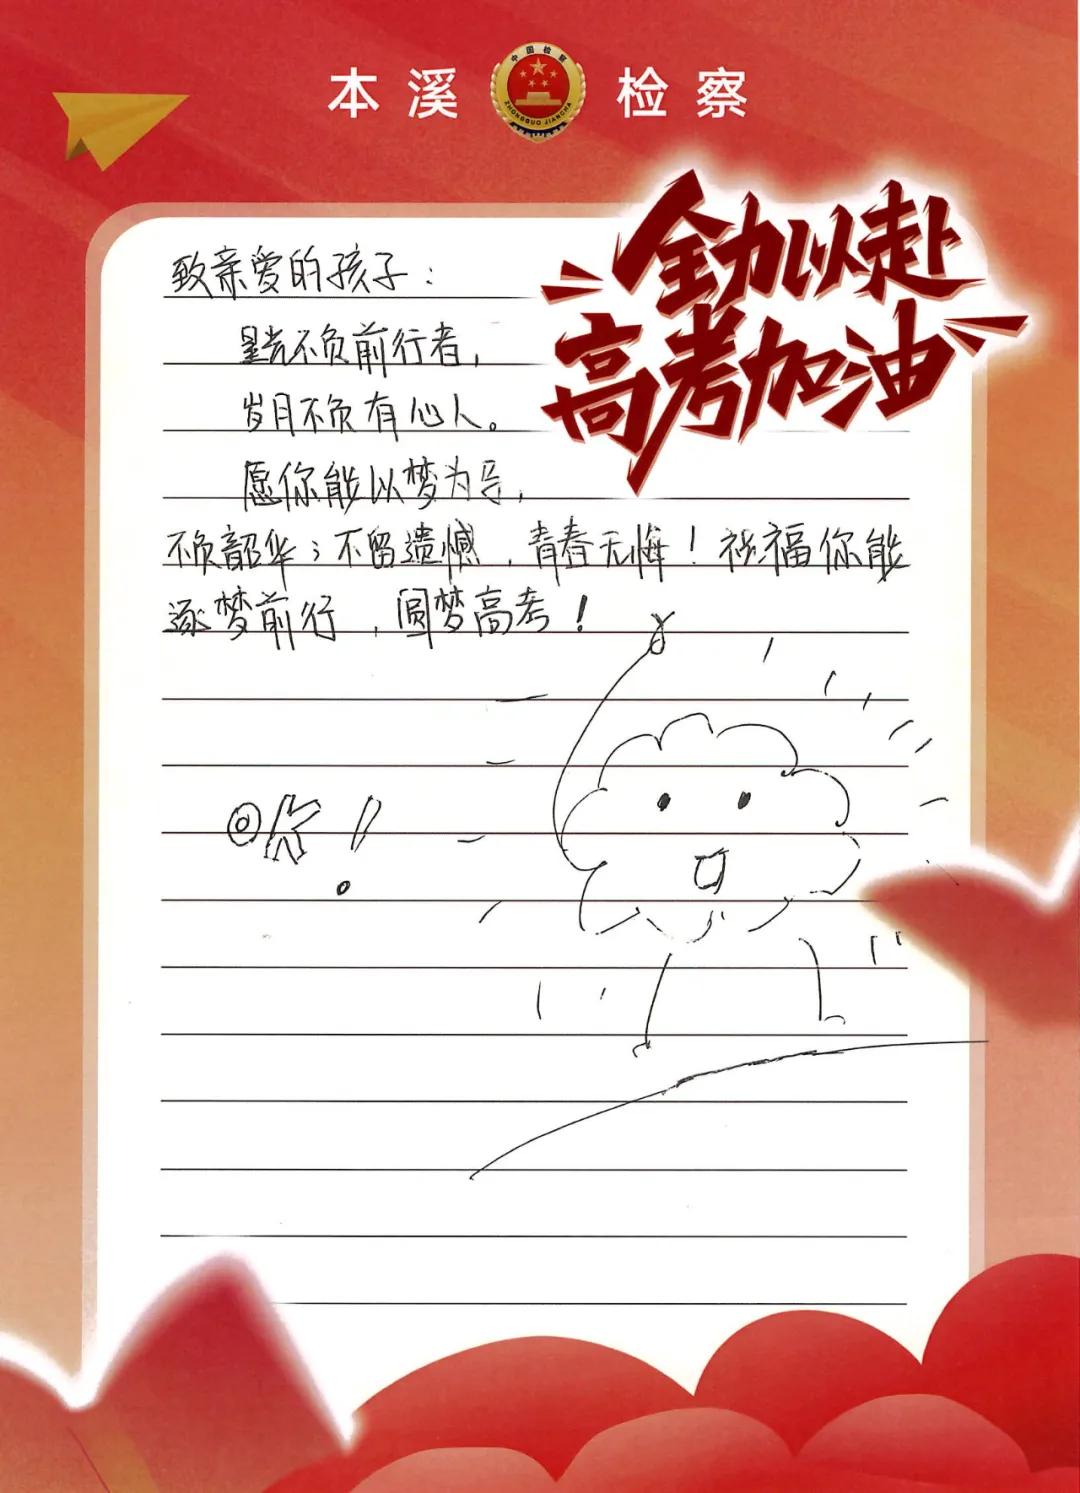 本溪 检察
中国检察
ZHONGGUO JIANCHA
全力以赴
高考加油
致亲爱的孩子：
星光不负前行者，
岁月不负有心人。
愿你能以梦为马，
不负韶华；不留遗憾，青春无悔！祝福你能
逐梦前行，圆梦高考！
OK！